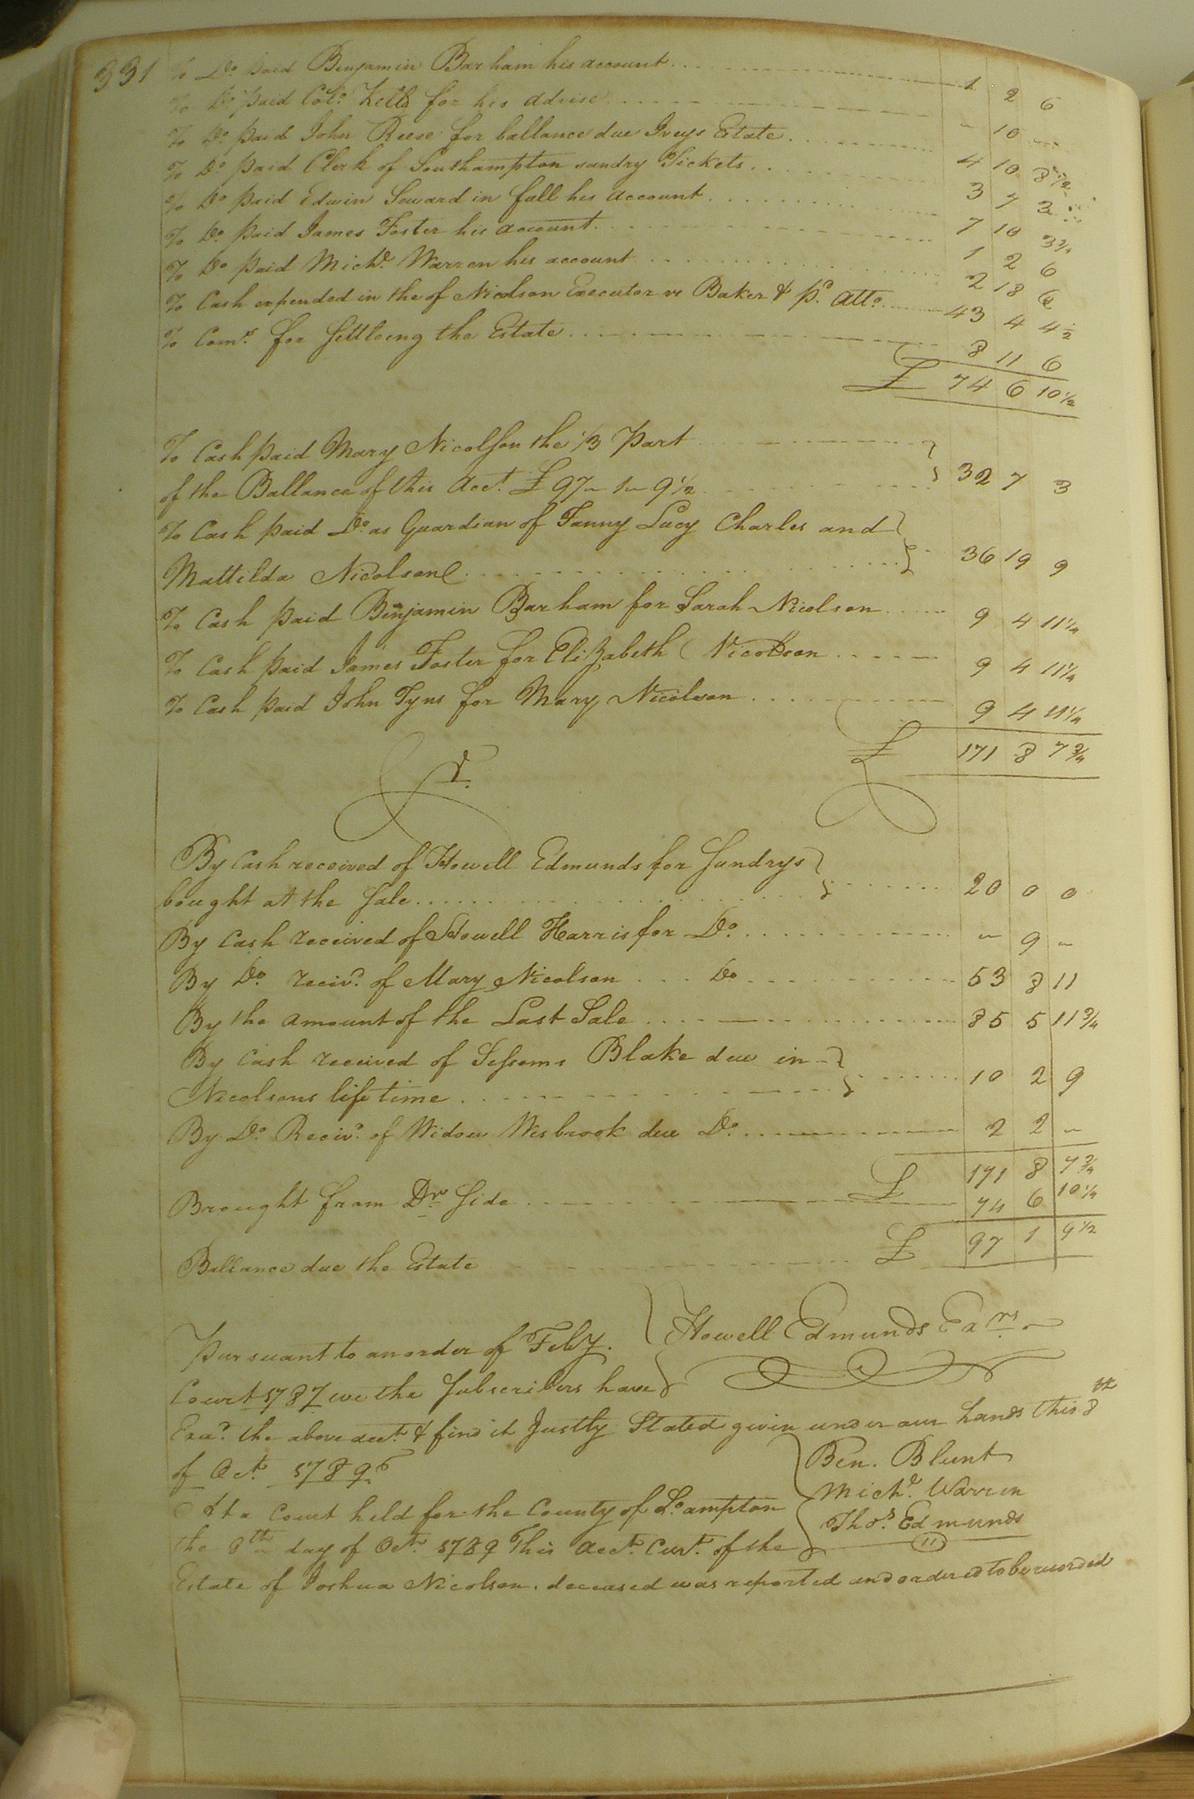 331 To Do. paid Benjamin Barham his account 1 2 6
To Do. paid Colo. Kello for his advise - 10 -
To Do. paid John Reese for ballance due Iveys Estate 4 10 8 1/2
To Do. paid Clerk of Southampton sundry Tickets 3 7 2
To Do. paid Edwin Seward in full his account 7 10 3 3/4
To Do. paid James Foster his account 1 2 6
To Do. paid Michl. Warren his account 2 18 6
To Cash expended in the of Nicolson Executor vs Baker & pd. Atto. 43 4 4 1/2
To Coms. for Settleing the Estate 3 11 6
£ 74 6 10 1/2
To Cash paid Mary Nicolson the 1/3 Part
of the Ballance of this Acct. £ 97 - 1 - 9 1/2 32 7 3
To Cash paid Do. as Guardian of Fanny Lucy Charles and
Mattilda Nicolson 36 19 9
To Cash paid Benjamin Barham for Sarah Nicolson 9 4 11 1/4
To Cash paid James Foster for Elizabeth Nicolson 9 4 11 1/4
To Cash paid John Tyns for Mary Nicolson 9 4 11 1/4
£ 171 8 7 3/4
Cr.
By Cash received of Howell Edmunds for Sundrys
bought at the Sale 20 0 0
By Cash received of Howell Harris for Do. - 9 -
By Do. receivd. of Mary Nicolson Do 53 8 11
By the amount of the Last Sale 85 5 11 3/4
By Cash received of Sessoms Blake due in
Nicolsons life time 10 2 9
By Do. Receivd. of Widow Wesbrook due Do. 2 2 -
£ 171 8 7 3/4
Brought from Dr. Side 74 6 10 1/4
Ballance due the Estate £ 97 1 9 1/2
Howell Edmunds Exrs.
Pursuant to an order of Feby.
Court 1787 we the Subscribers have
Exad. the above acct. & find it Justly Stated given under our hands this 8th
of Octr. 1789
Ben. Blunt
Michl. Warren
Thos. Edmunds
At a Court held for the County of So.ampton
the 8th day of Octr. 1789 This Acct. Curt. of the
Estate of Joshua Nicolson. deceased was reported and ordered to be recorded